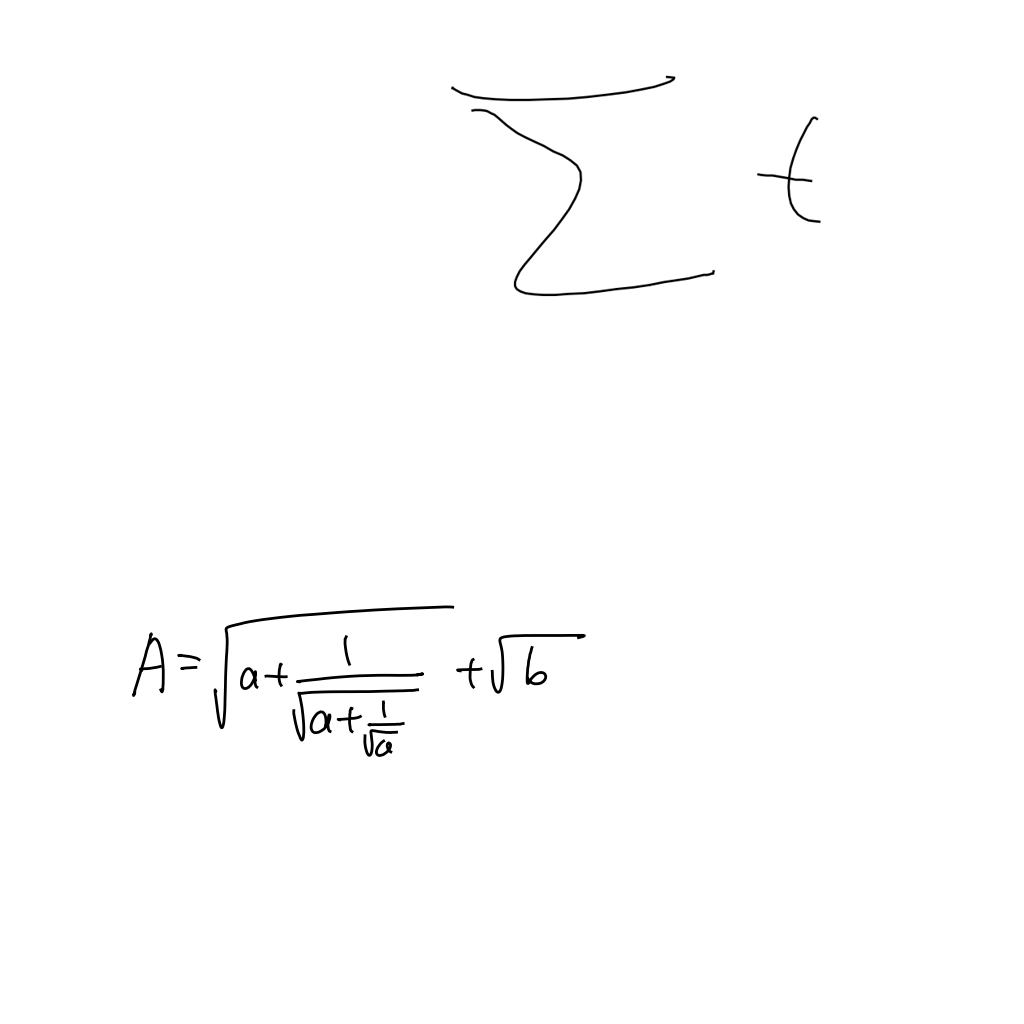 ∑ t
A = √(a + 1/√(a + 1/√a)) + √b